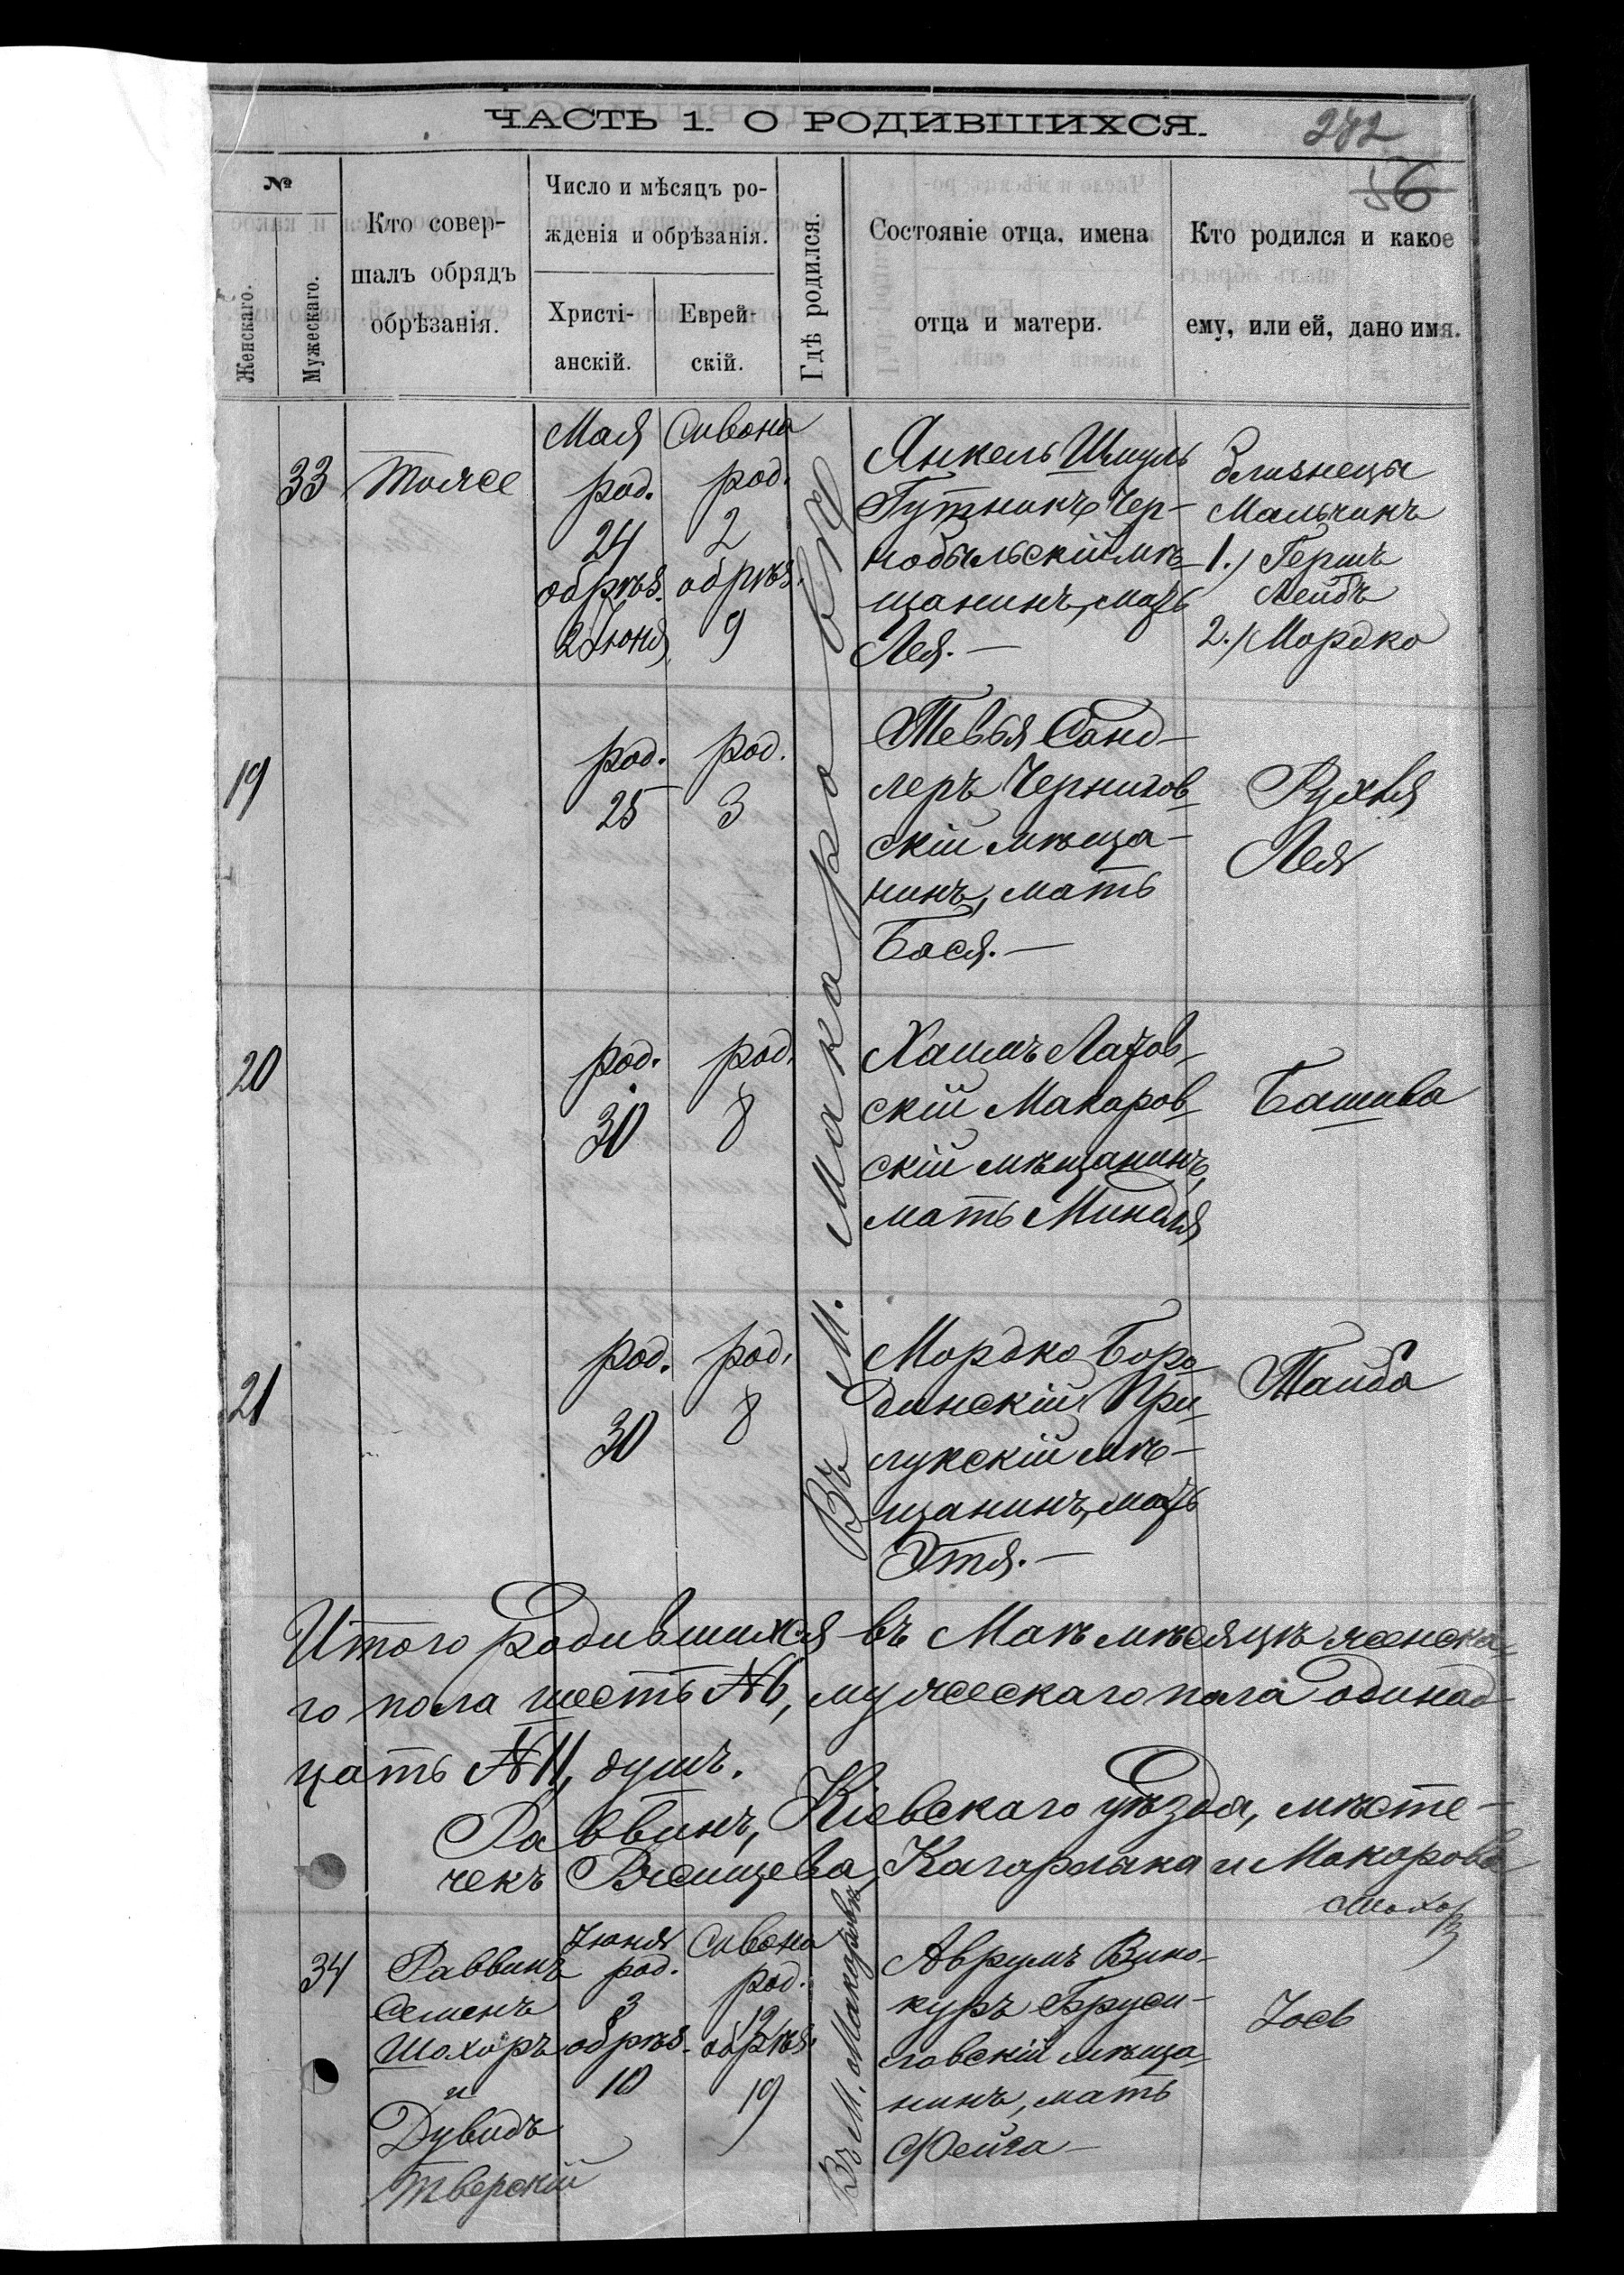 ЧАСТЬ 1. О РОДИВШИХСЯ.
282
56
№
Женскаго.
Мужескаго.
Кто совер-
шалъ обрядъ
обрѣзанія.
Число и мѣсяцъ ро-
жденія и обрѣзанія.
Христі-
анскій.
Еврей-
скій.
Гдѣ родился.
Состояніе отца, имена
отца и матери.
Кто родился и какое
ему, или ей, дано имя.
33
тоже
Мая
род.
24
обрѣз.
2 Іюня
Сивона
род.
2
обрѣз.
9
Въ М. Макаровѣ
Янкель Шмуль
Гутникъ Чер-
нобыльскій мѣ-
щанинъ, мать
Лея.—
близнецы
Мальчикъ
1.) Гершъ
Лейбъ
2.) Мордко
19
род.
25
род.
3
Тевья Санд-
леръ Чернигов-
скій мѣща-
нинъ, мать
Бася.—
Рухля
Лея
20
род.
30
род.
8
Хаимъ
скій Макаров-
скій мѣщанинъ,
мать Миндля
Башива
21
род.
30
род.
8
Мордко Боро-
динскій При-
лукскій мѣ-
щанинъ, мать
Этя.—
Тайба
Итого родившихся въ Маѣ мѣсяцѣ женска-
го пола шесть №6, мужескаго пола одинад-
цать №11, душъ.
Раввинъ, Кіевскаго уѣзда, мѣсте-
чекъ Ржищева, Кагарлыка и Макарова
34
Раввинъ
Семенъ
Шохоръ
и
Дувидъ
Тверскій
Іюня
род.
3
обрѣз.
10
Сивона
род.
12
обрѣз.
19
Въ М. Макаровѣ
Аврумъ Вино-
куръ Бруси-
ловскій мѣща-
нинъ, мать
Фейга—
Іосъ